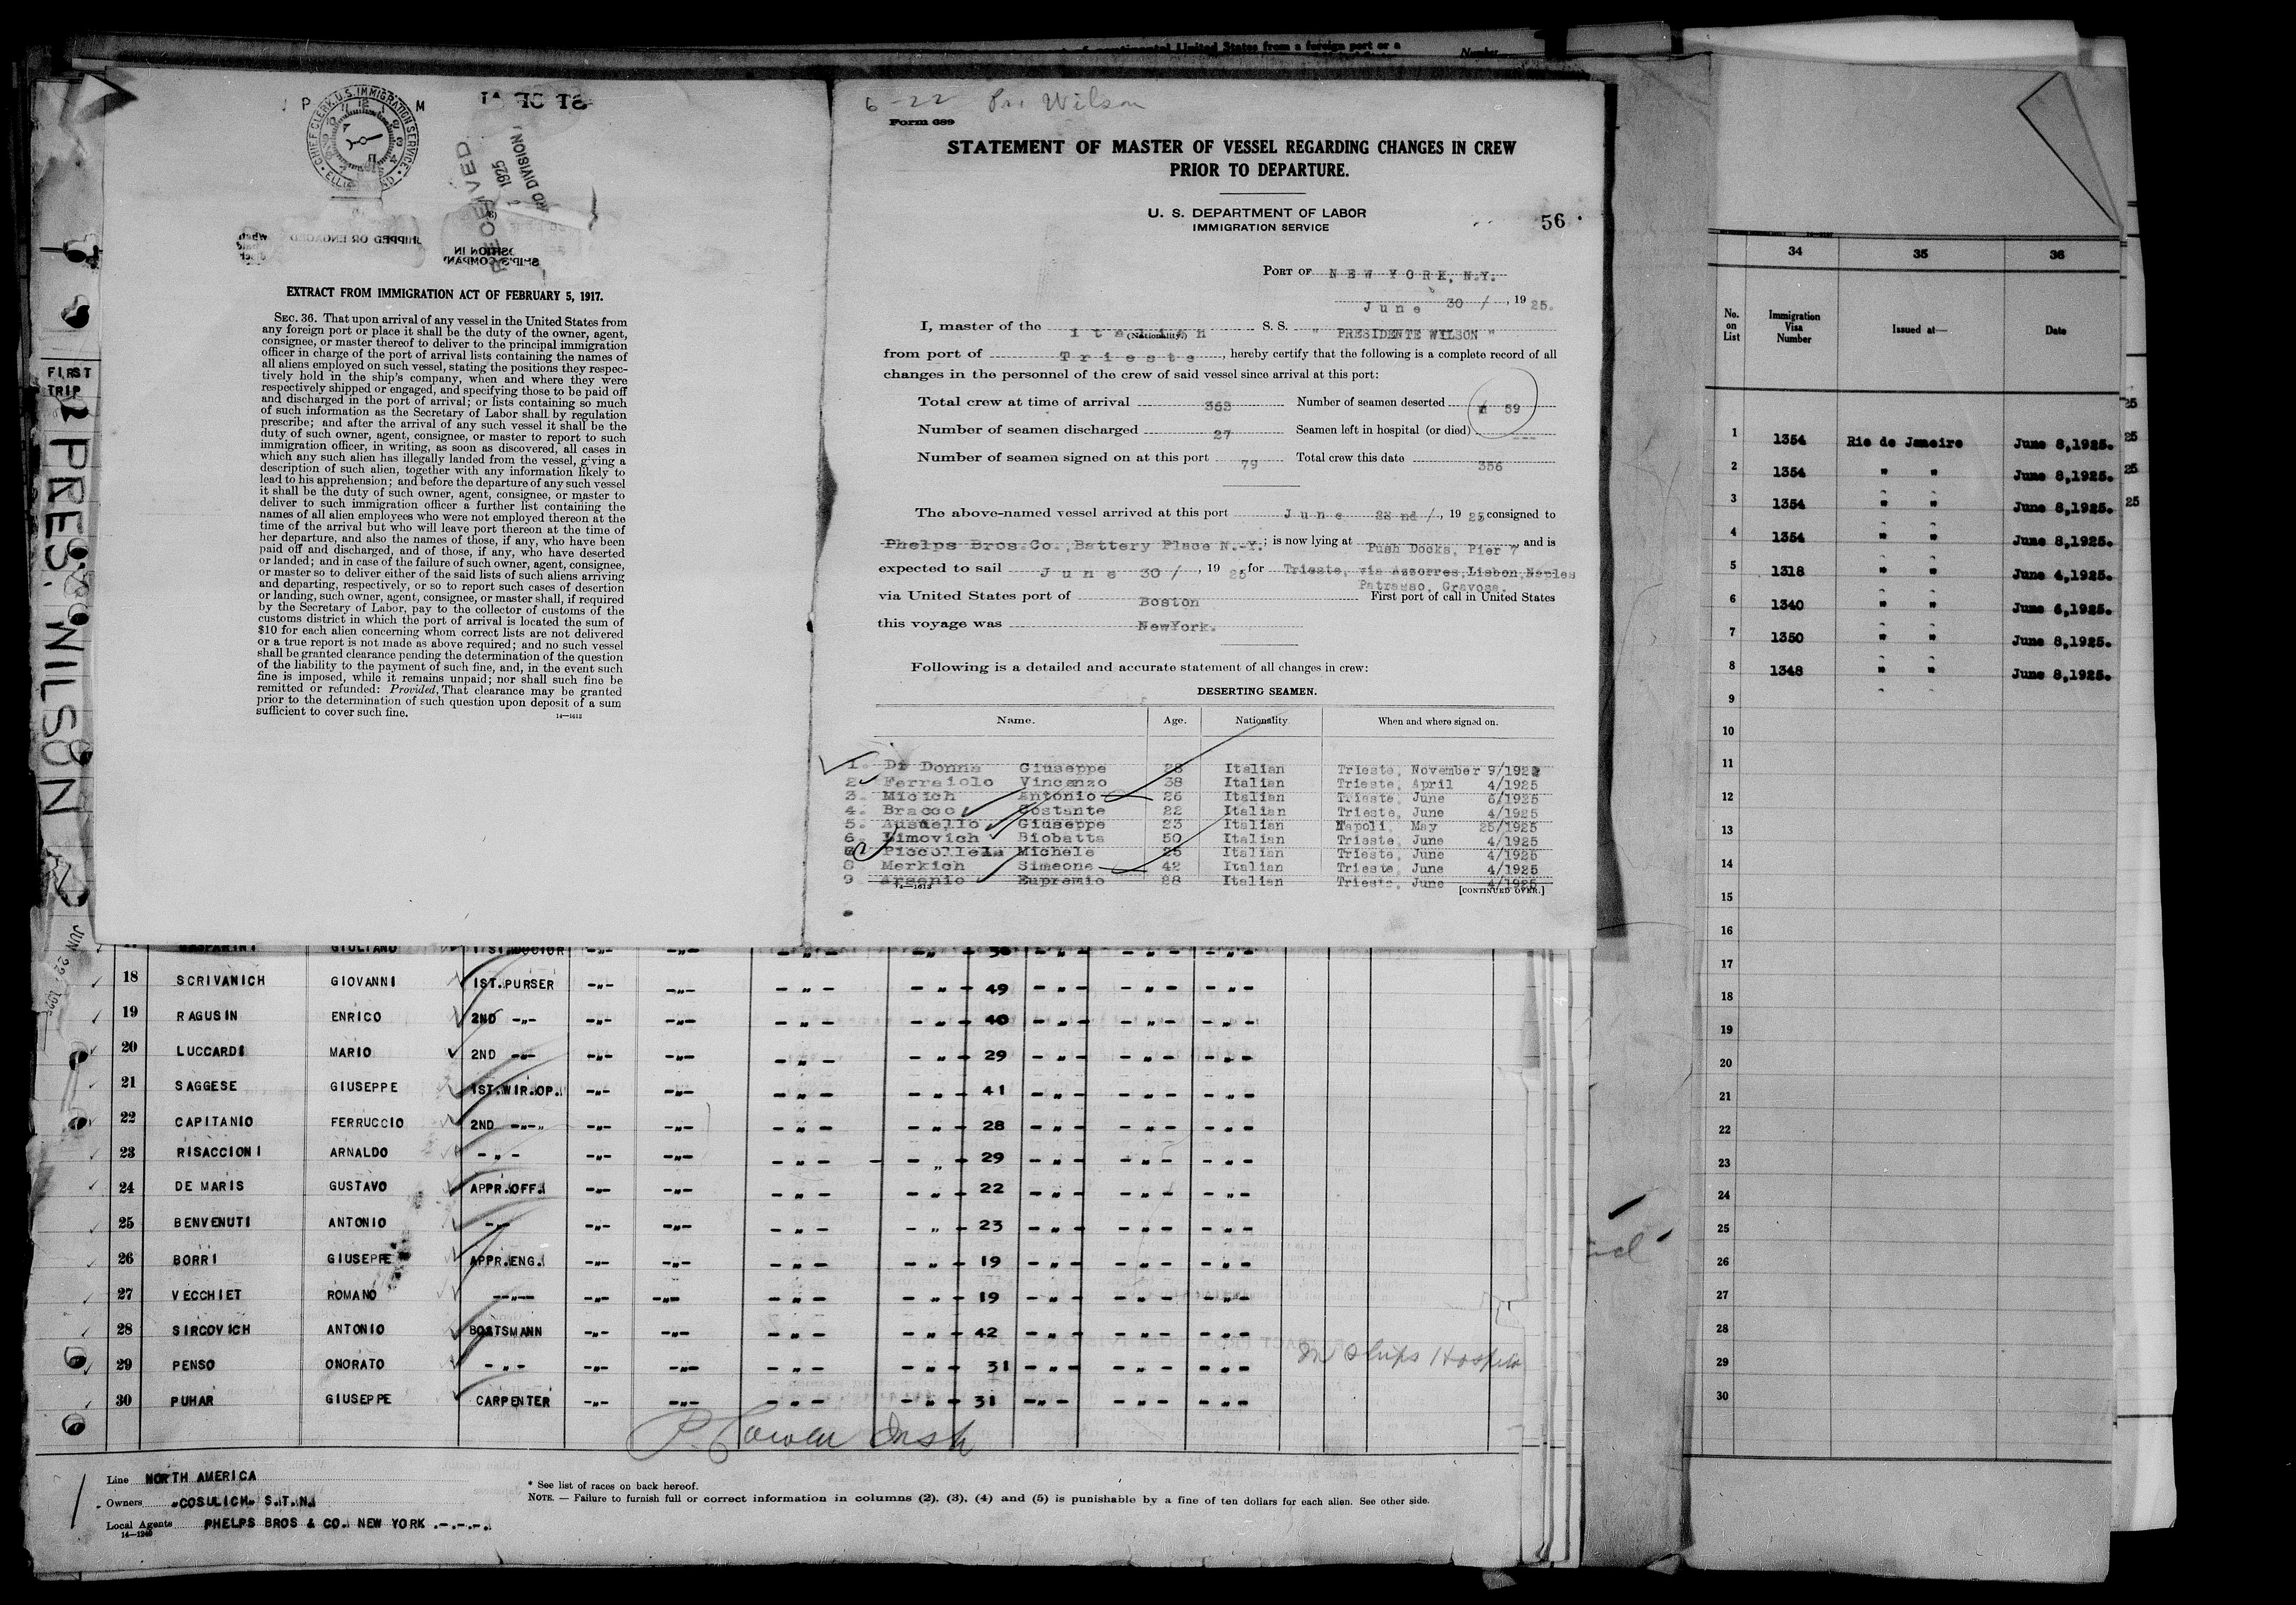 of continental United States from a foreign port or a
Number
P M
CHIEF CLERK U.S. IMMIGRATION SERVICE
RECEIVED
RD DIVISION
1925
EXTRACT FROM IMMIGRATION ACT OF FEBRUARY 5, 1917.
SEC. 36. That upon arrival of any vessel in the United States from
any foreign port or place it shall be the duty of the owner, agent,
consignee, or master thereof to deliver to the principal immigration
officer in charge of the port of arrival lists containing the names of
all aliens employed on such vessel, stating the positions they respec-
tively hold in the ship's company, when and where they were
respectively shipped or engaged, and specifying those to be paid off
and discharged in the port of arrival; or lists containing so much
of such information as the Secretary of Labor shall by regulation
prescribe; and after the arrival of any such vessel it shall be the
duty of such owner, agent, consignee, or master to report to such
immigration officer, in writing, as soon as discovered, all cases in
which any such alien has illegally landed from the vessel, giving a
description of such alien, together with any information likely to
lead to his apprehension; and before the departure of any such vessel
it shall be the duty of such owner, agent, consignee, or master to
deliver to such immigration officer a further list containing the
names of all alien employees who were not employed thereon at the
time of the arrival but who will leave port thereon at the time of
her departure, and also the names of those, if any, who have been
paid off and discharged, and of those, if any, who have deserted
or landed; and in case of the failure of such owner, agent, consignee,
or master so to deliver either of the said lists of such aliens arriving
and departing, respectively, or so to report such cases of desertion
or landing, such owner, agent, consignee, or master shall, if required
by the Secretary of Labor, pay to the collector of customs of the
customs district in which the port of arrival is located the sum of
$10 for each alien concerning whom correct lists are not delivered
or a true report is not made as above required; and no such vessel
shall be granted clearance pending the determination of the question
of the liability to the payment of such fine, and, in the event such
fine is imposed, while it remains unpaid; nor shall such fine be
remitted or refunded: Provided, That clearance may be granted
prior to the determination of such question upon deposit of a sum
sufficient to cover such fine.
14—1613
FIRST
TRIP
PRES. WILSON
JUN 22 1925
6-22 Pres Wilson
Form 689
STATEMENT OF MASTER OF VESSEL REGARDING CHANGES IN CREW
PRIOR TO DEPARTURE.
U. S. DEPARTMENT OF LABOR
IMMIGRATION SERVICE
56
PORT OF NEW YORK, N.Y.
June 30/, 1925.
I, master of the Italian S. S. " PRESIDENTE WILSON "
(Nationality.)
from port of Trieste, hereby certify that the following is a complete record of all
changes in the personnel of the crew of said vessel since arrival at this port:
Total crew at time of arrival 363 Number of seamen deserted 59
Number of seamen discharged 27 Seamen left in hospital (or died) ---
Number of seamen signed on at this port 79 Total crew this date 356
The above-named vessel arrived at this port June 22nd/, 1925 consigned to
Phelps Bros. Co., Battery Place N.-Y.; is now lying at Push Docks, Pier 7 and is
expected to sail June 30/, 1925, for Trieste, via Azzorres, Lisbon, Naples
Patrasso, Gravosa.
via United States port of Boston First port of call in United States
this voyage was NewYork.
Following is a detailed and accurate statement of all changes in crew:
DESERTING SEAMEN.
Name. Age. Nationality. When and where signed on.
1. Di Donna Giuseppe 28 Italian Trieste, November 9/192
2. Ferraiolo Vincenzo 38 Italian Trieste, April 4/1925
3. Micich Antonio 26 Italian Trieste, June 6/1925
4. Bracco Costante 22 Italian Trieste, June 4/1925
5. Ausiello Giuseppe 23 Italian Napoli. May 25/1925
6. Limovich Biobatta 50 Italian Trieste, June 4/1925
Piccollela Michele 25 Italian Trieste, June 4/1925
8 Merkich Simeone 42 Italian Trieste, June 4/1925
9 Arsenio Eupremio 28 Italian Trieste, June 4/1925
14—1613
[CONTINUED OVER.]
GASPARINI GIULIANO 1ST.DOCTOR -"- -"- -"- -"- -"- -"- -"-
18 SCRIVANICH GIOVANNI 1ST.PURSER -"- -"- -"- -"- 49 -"- -"- -"-
19 RAGUSIN ENRICO 2ND -"- -"- -"- -"- -"- 40 -"- -"- -"-
20 LUCCARDI MARIO 2ND -"- -"- -"- -"- -"- 29 -"- -"- -"-
21 SAGGESE GIUSEPPE 1ST.WIR.OP. -"- -"- -"- -"- 41 -"- -"- -"-
22 CAPITANIO FERRUCCIO 2ND -"-"- -"- -"- -"- -"- 28 -"- -"- -"-
23 RISACCIONI ARNALDO -"- -"- -"- -"- -"- 29 -"- -"- -"-
24 DE MARIS GUSTAVO APPR.OFF. -"- -"- -"- -"- 22 -"- -"- -"-
25 BENVENUTI ANTONIO -"- -"- -"- -"- -"- 23 -"- -"- -"-
26 BORRI GIUSEPPE APPR.ENG. -"- -"- -"- -"- 19 -"- -"- -"-
27 VECCHIET ROMANO --"-- -"- -"- -"- -"- 19 -"- -"- -"-
28 SIRCOVICH ANTONIO BOATSMANN -"- -"- -"- -"- 42 -"- -"- -"-
29 PENSO ONORATO -"- -"- -"- -"- -"- 31 -"- -"- -"- In Ships Hospital
30 PUHAR GIUSEPPE CARPENTER -"- -"- -"- -"- 31 -"- -"- -"-
Line NORTH AMERICA
Owners "COSULICH" S.T.N.
Local Agents PHELPS BROS & CO. NEW YORK .-.-.-.
14—1240
* See list of races on back hereof.
NOTE. — Failure to furnish full or correct information in columns (2), (3), (4) and (5) is punishable by a fine of ten dollars for each alien. See other side.
34 35 36
No. on List Immigration Visa Number Issued at— Date
1 1354 Rio de Janeiro June 8,1925.
2 1354 " " June 8,1925.
3 1354 " " June 8,1925.
4 1354 " " June 8,1925.
5 1318 " " June 4,1925.
6 1340 " " June 6,1925.
7 1350 " " June 8,1925.
8 1348 " " June 8,1925.
9
10
11
12
13
14
15
16
17
18
19
20
21
22
23
24
25
26
27
28
29
30
25
25
25
25